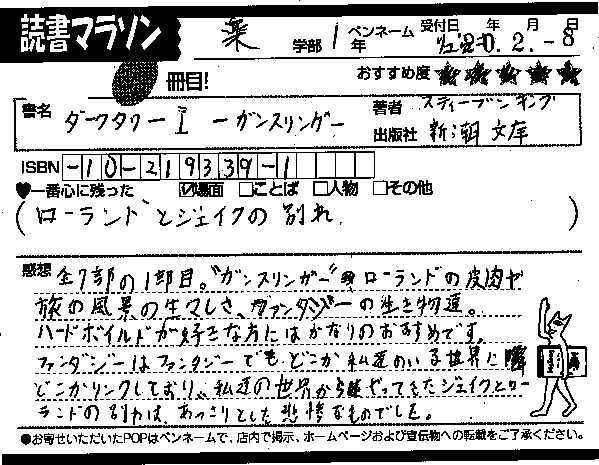 読書マラソン
薬 学部 1年 ペンネーム 受付日 年 月 日
冊目! おすすめ度 ★★★★★
書名 ダークタワーⅠ ーガンスリンガー 著者 スティーブンキング
出版社 新潮文庫
ISBN -10-219339-1
♥一番心に残った ☑場面 □ことば □人物 □その他
(ローランドとジェイクの別れ.)
感想 全7部の1部目。"ガンスリンガー" ローランドの皮肉や
旅の風景の生々しさ、ファンタジーの生き物達。
ハードボイルドが好きな方にはかなりのおすすめです。
ファンタジーはファンタジーでもどこか私達のいる世界に
どこかリンクしており、私達の世界からやってきたジェイクとロー
ランドの別れは、あっさりとした悲惨なものでした。
●お寄せいただいたPOPはペンネームで、店内で掲示、ホームページおよび宣伝物への転載をご了承ください。